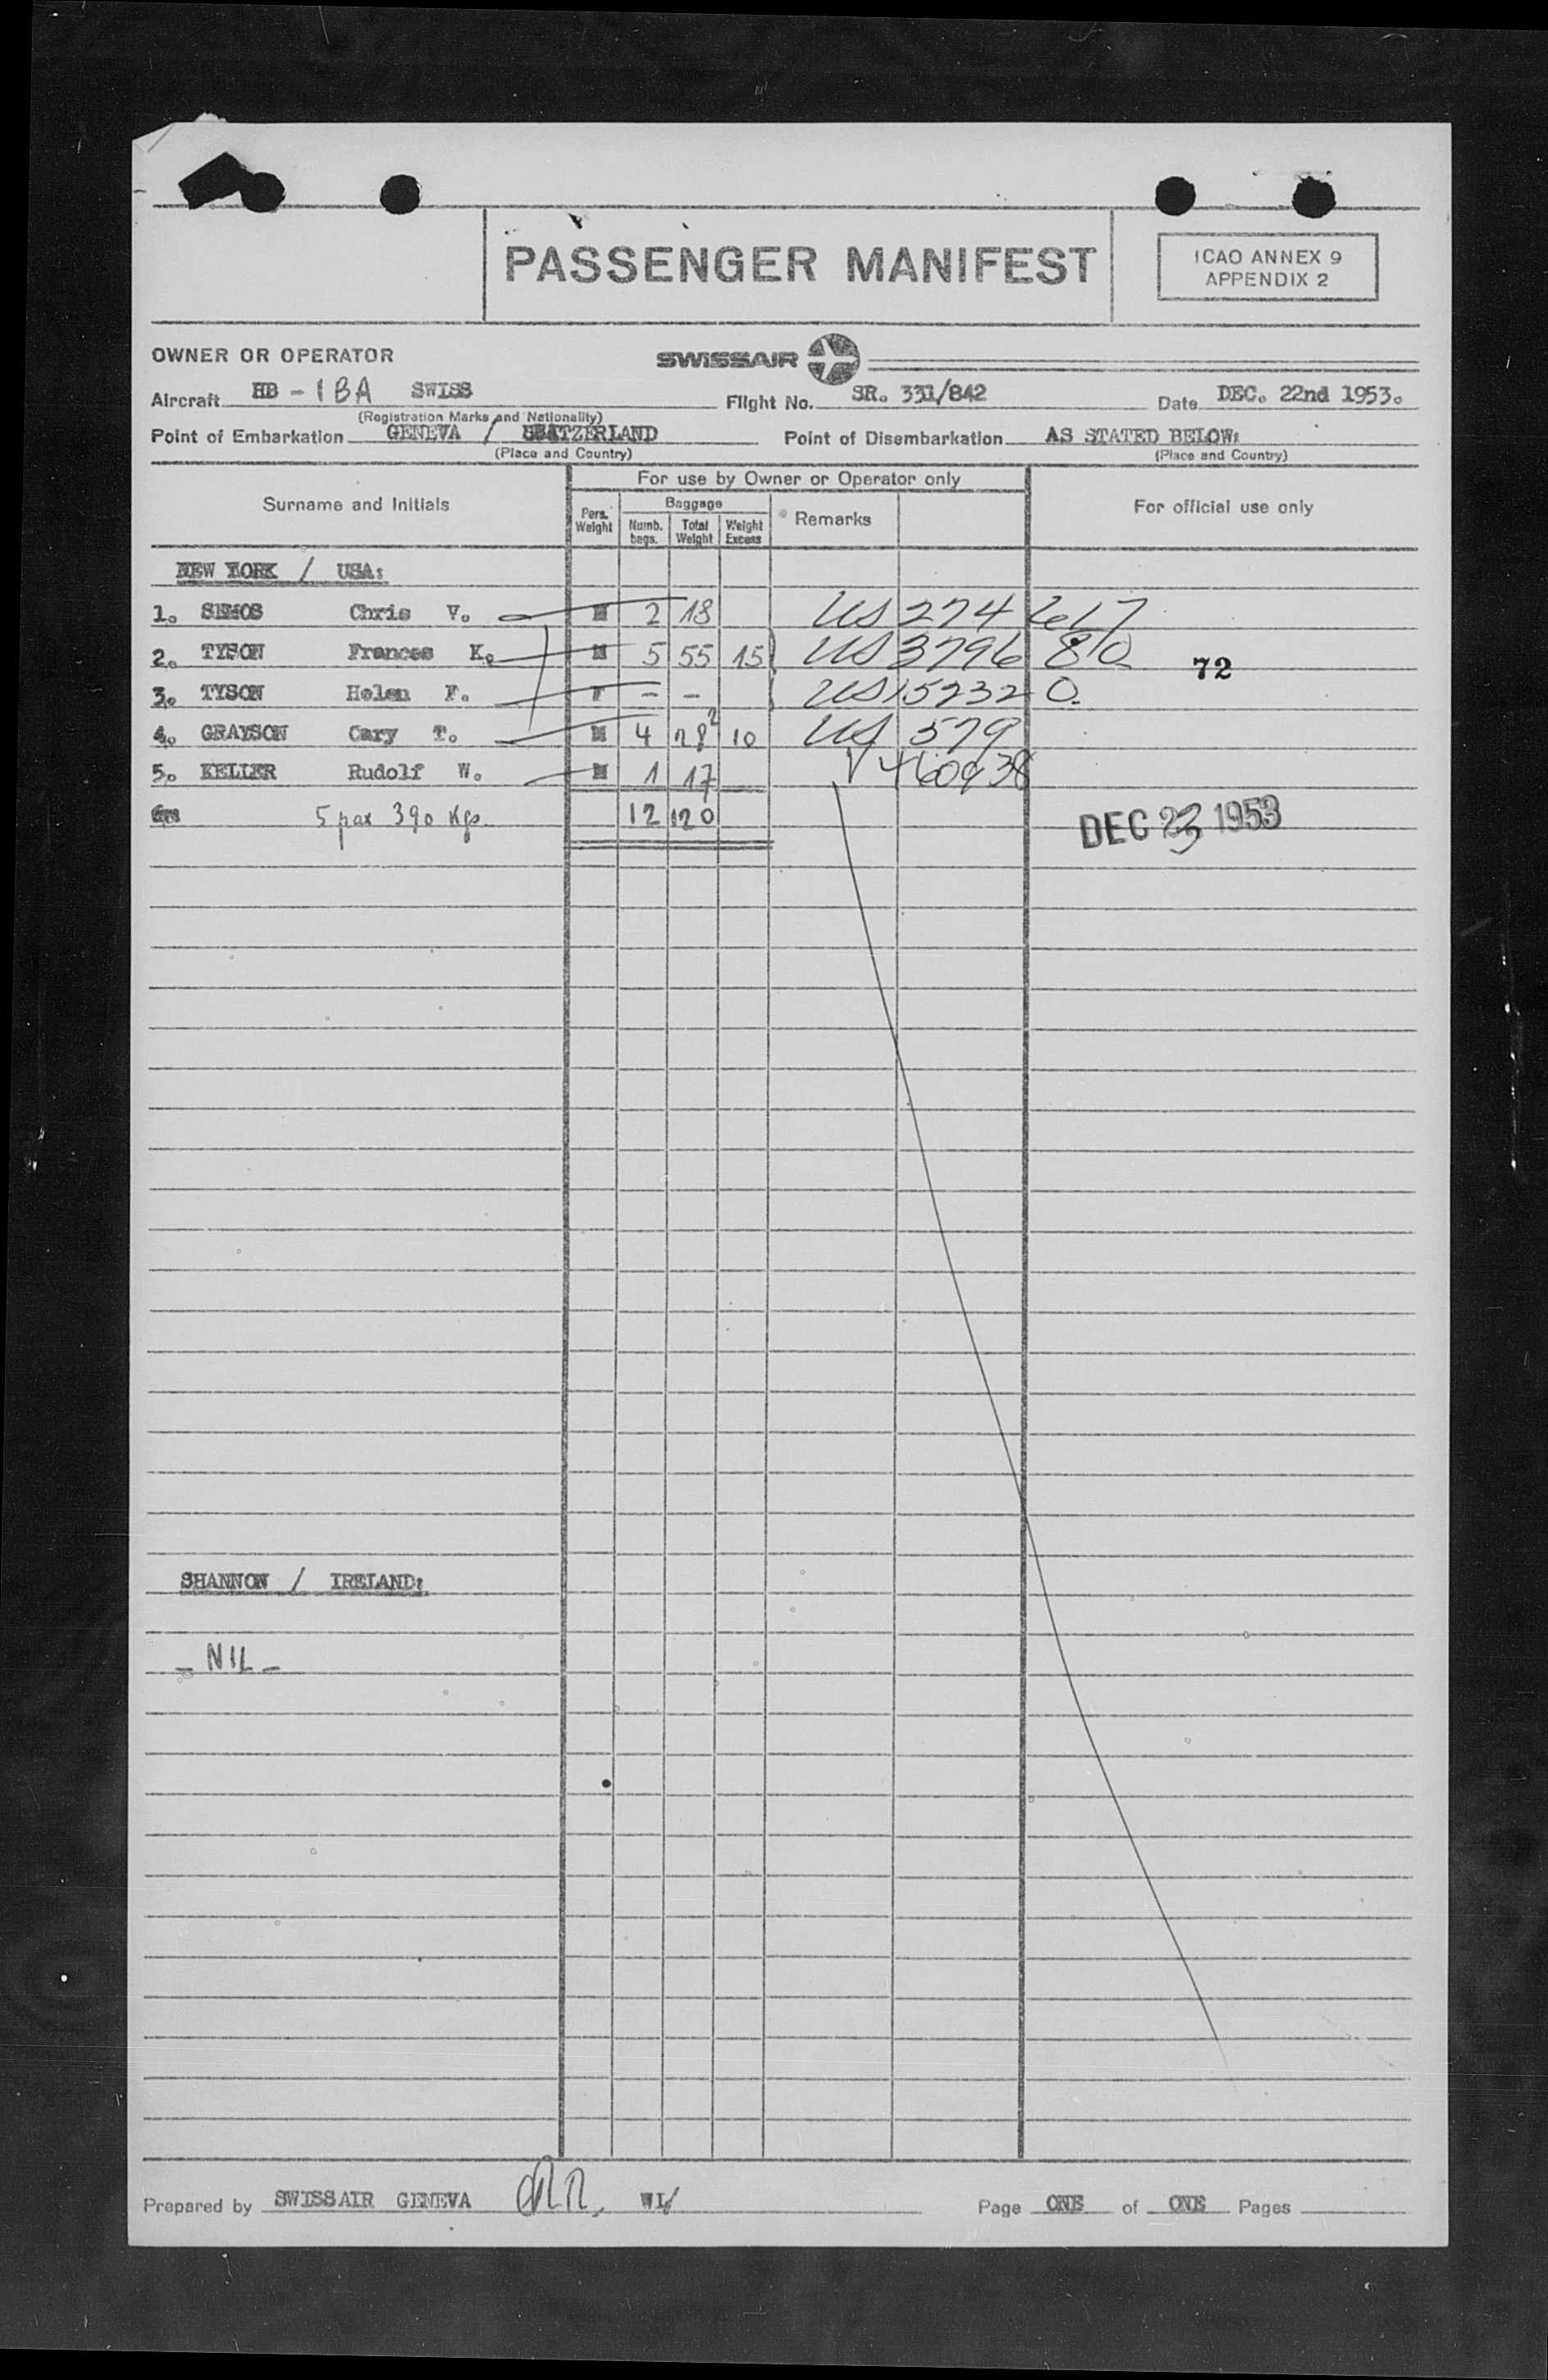 PASSENGER MANIFEST
ICAO ANNEX 9
APPENDIX 2
OWNER OR OPERATOR
SWISSAIR
Aircraft HB - IBA SWISS
Flight No. SR. 331/842
Date DEC. 22nd 1953.
(Registration Marks and Nationality)
Point of Embarkation GENEVA /
Point of Disembarkation AS STATED BELOW:
(Place and Country)
(Place and Country)
Surname and Initials
For use by Owner or Operator only
For official use only
Pers. Weight
Baggage
Numb. bags.
Total Weight
Weight Excess
Remarks
NEW YORK / USA:
1. SEMOS Chris V. M 2 18 US 274 617
2. TYSON Frances K. M 5 55 15 US 3796 80
72
3. TYSON Helen F. F - - US 152320
4. GRAYSON Cary T. M 4 10 US 579
5. KELLER Rudolf W. M 1 17 V 460938
5 pax 390 Kgs. 12 120
DEC 23 1953
SHANNON / IRELAND:
- NIL -
Prepared by SWISSAIR GENEVA
Page ONE of ONE Pages